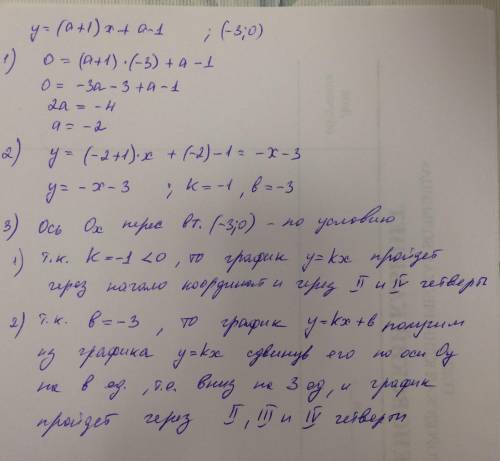 y = (a+1)x + a-1 ; (-3;0)
1) 0 = (a+1)·(-3) + a - 1
0 = -3a - 3 + a - 1
2a = -4
a = -2
2) y = (-2+1)·x + (-2) - 1 = -x - 3
y = -x - 3 ; K = -1, в = -3
3) Ось Ox перес в т. (-3;0) - по условию
1) т.к. K = -1 < 0, то график y = kx пройдет
через начало координат и через II и IV четверты
2) т.к. в = -3, то график y = kx + в получим
из графика y = kx сдвинув его по оси Oy
на в ед., т.е. вниз на 3 ед, и график
пройдет через II, III и IV четверты